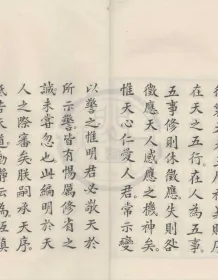 在天之五行在人之
五事修則休徵應失則咎
徵應天人感應之機神矣
惟天心仁愛人君常示變
以警之惟明君必敬天於
所示警皆有惕厲修省之
誠未嘗忽也此堀明於天
人之際審矣朕嗣承天序